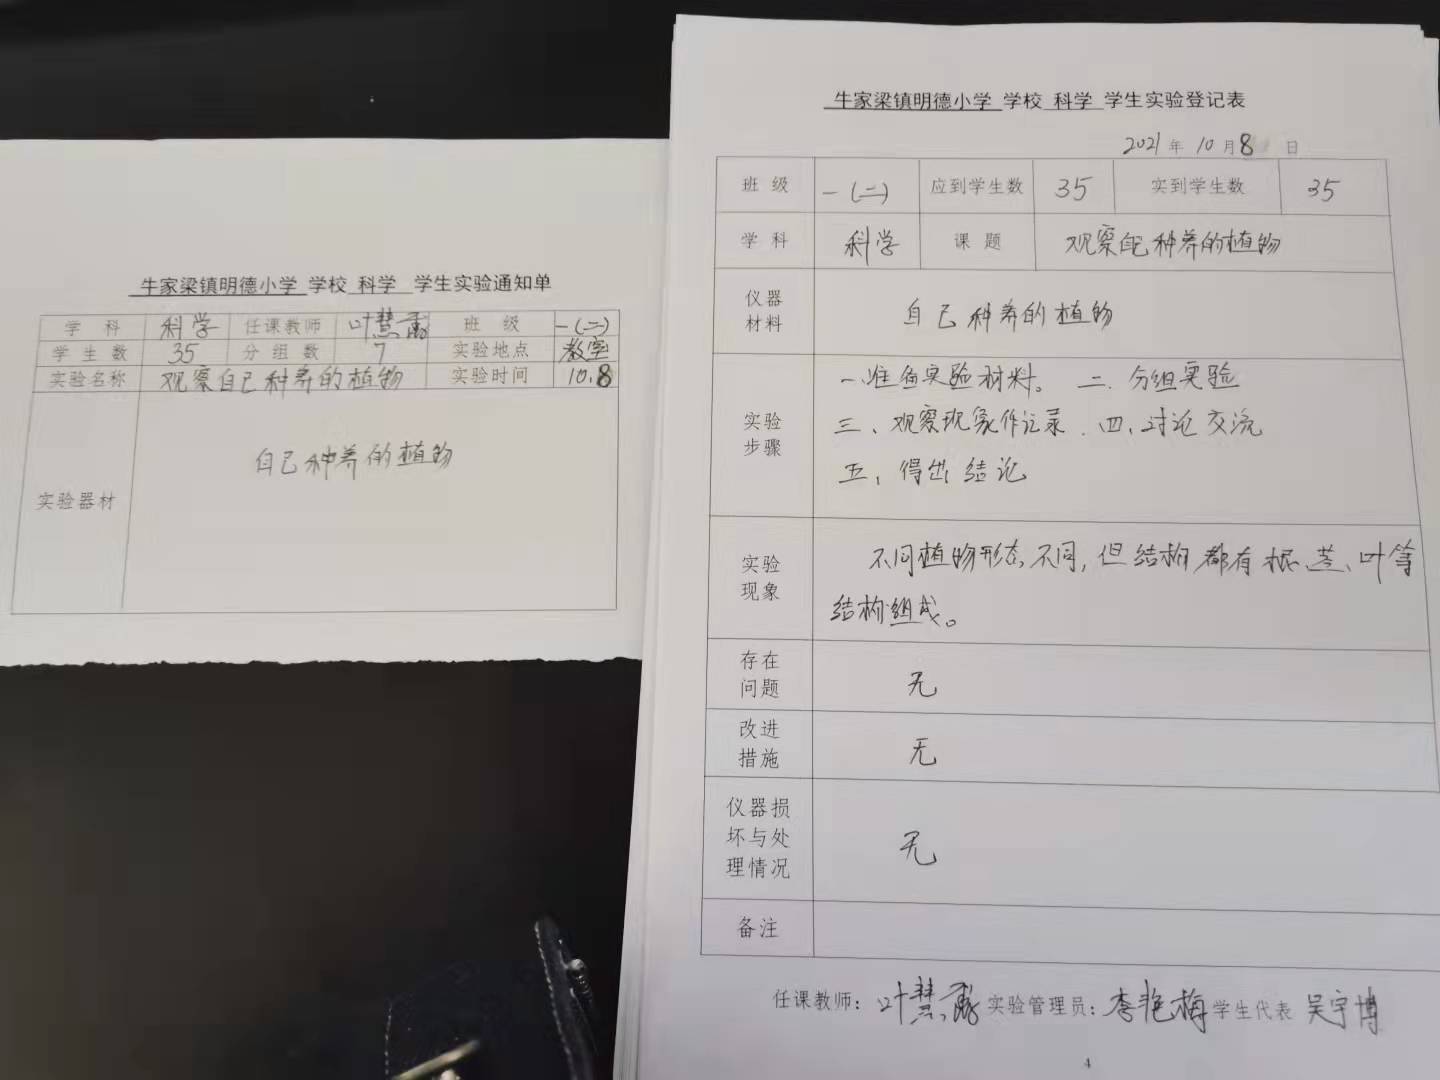 牛家梁镇明德小学 学校 科学 学生实验通知单
学科 科学 任课教师 叶慧 班级 一(二)
学生数 35 分组数 7 实验地点 教室
实验名称 观察自己种养的植物 实验时间 10.8
实验器材 自己种养的植物
牛家梁镇明德小学 学校 科学 学生实验登记表
2021年10月8日
班级 一(二) 应到学生数 35 实到学生数 35
学科 科学 课题 观察自己种养的植物
仪器材料 自己种养的植物
实验步骤
一、准备实验材料。 二、分组实验
三、观察现象作记录. 四、讨论交流
五、得出结论
实验现象
不同植物形态不同,但结构都有根、茎、叶等
结构组成。
存在问题 无
改进措施 无
仪器损坏与处理情况 无
备注
任课教师: 叶慧 实验管理员: 李艳梅 学生代表 吴宇博
4